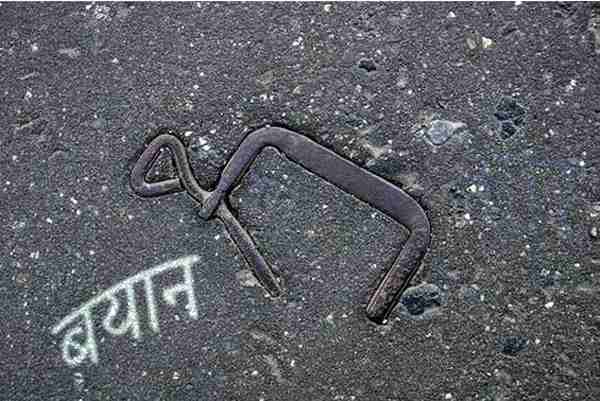 बयान